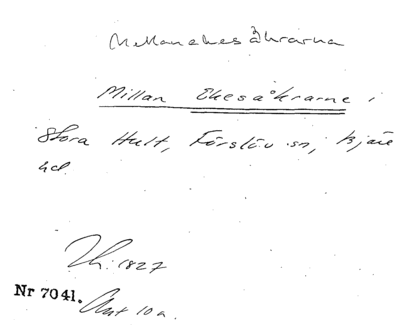 Mellanekesåkrarna
Millan Ekesåkrarne i
Stora Hult, Förslöv sn, Bjäre
hd.
Th. 1827
Nr 7041. Akt 10 a.